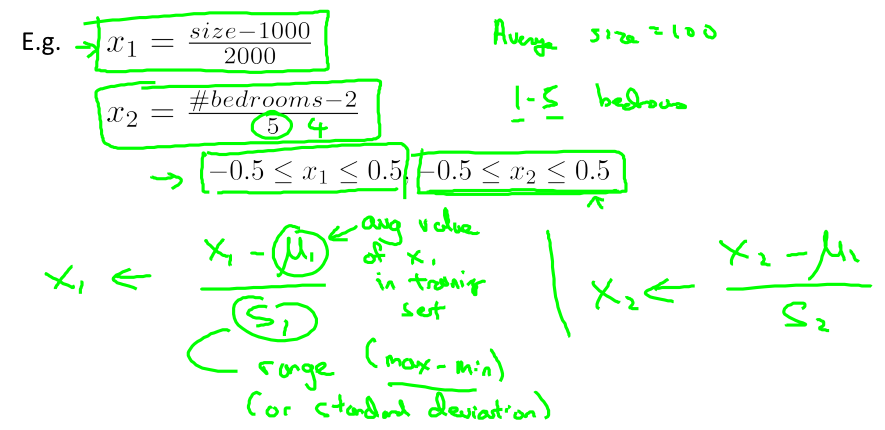 E.g. → x₁ = (size−1000)/2000 Average size = 100
x₂ = (#bedrooms−2)/5 4 1-5 bedrooms
→ −0.5 ≤ x₁ ≤ 0.5, −0.5 ≤ x₂ ≤ 0.5
x₁ ← (x₁ − μ₁)/S₁ ← avg value of x₁ in training set | x₂ ← (x₂ − μ₂)/S₂
range (max-min)
(or standard deviation)